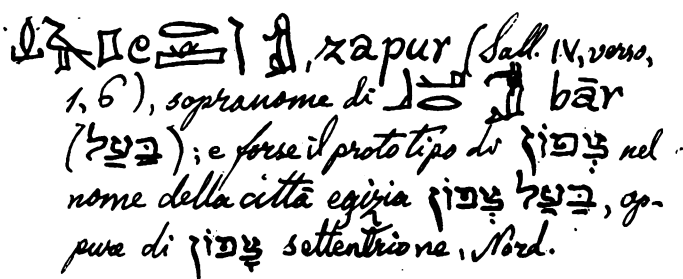 , zapur (Sall. IV, verso,
1, 6), sopranome di bār
(בַּעַל); e forse il prototipo di צְפוֹן nel
nome della città egizia בַּעַל צְפוֹן, op-
pure di צָפוֹן settentrione, Nord.